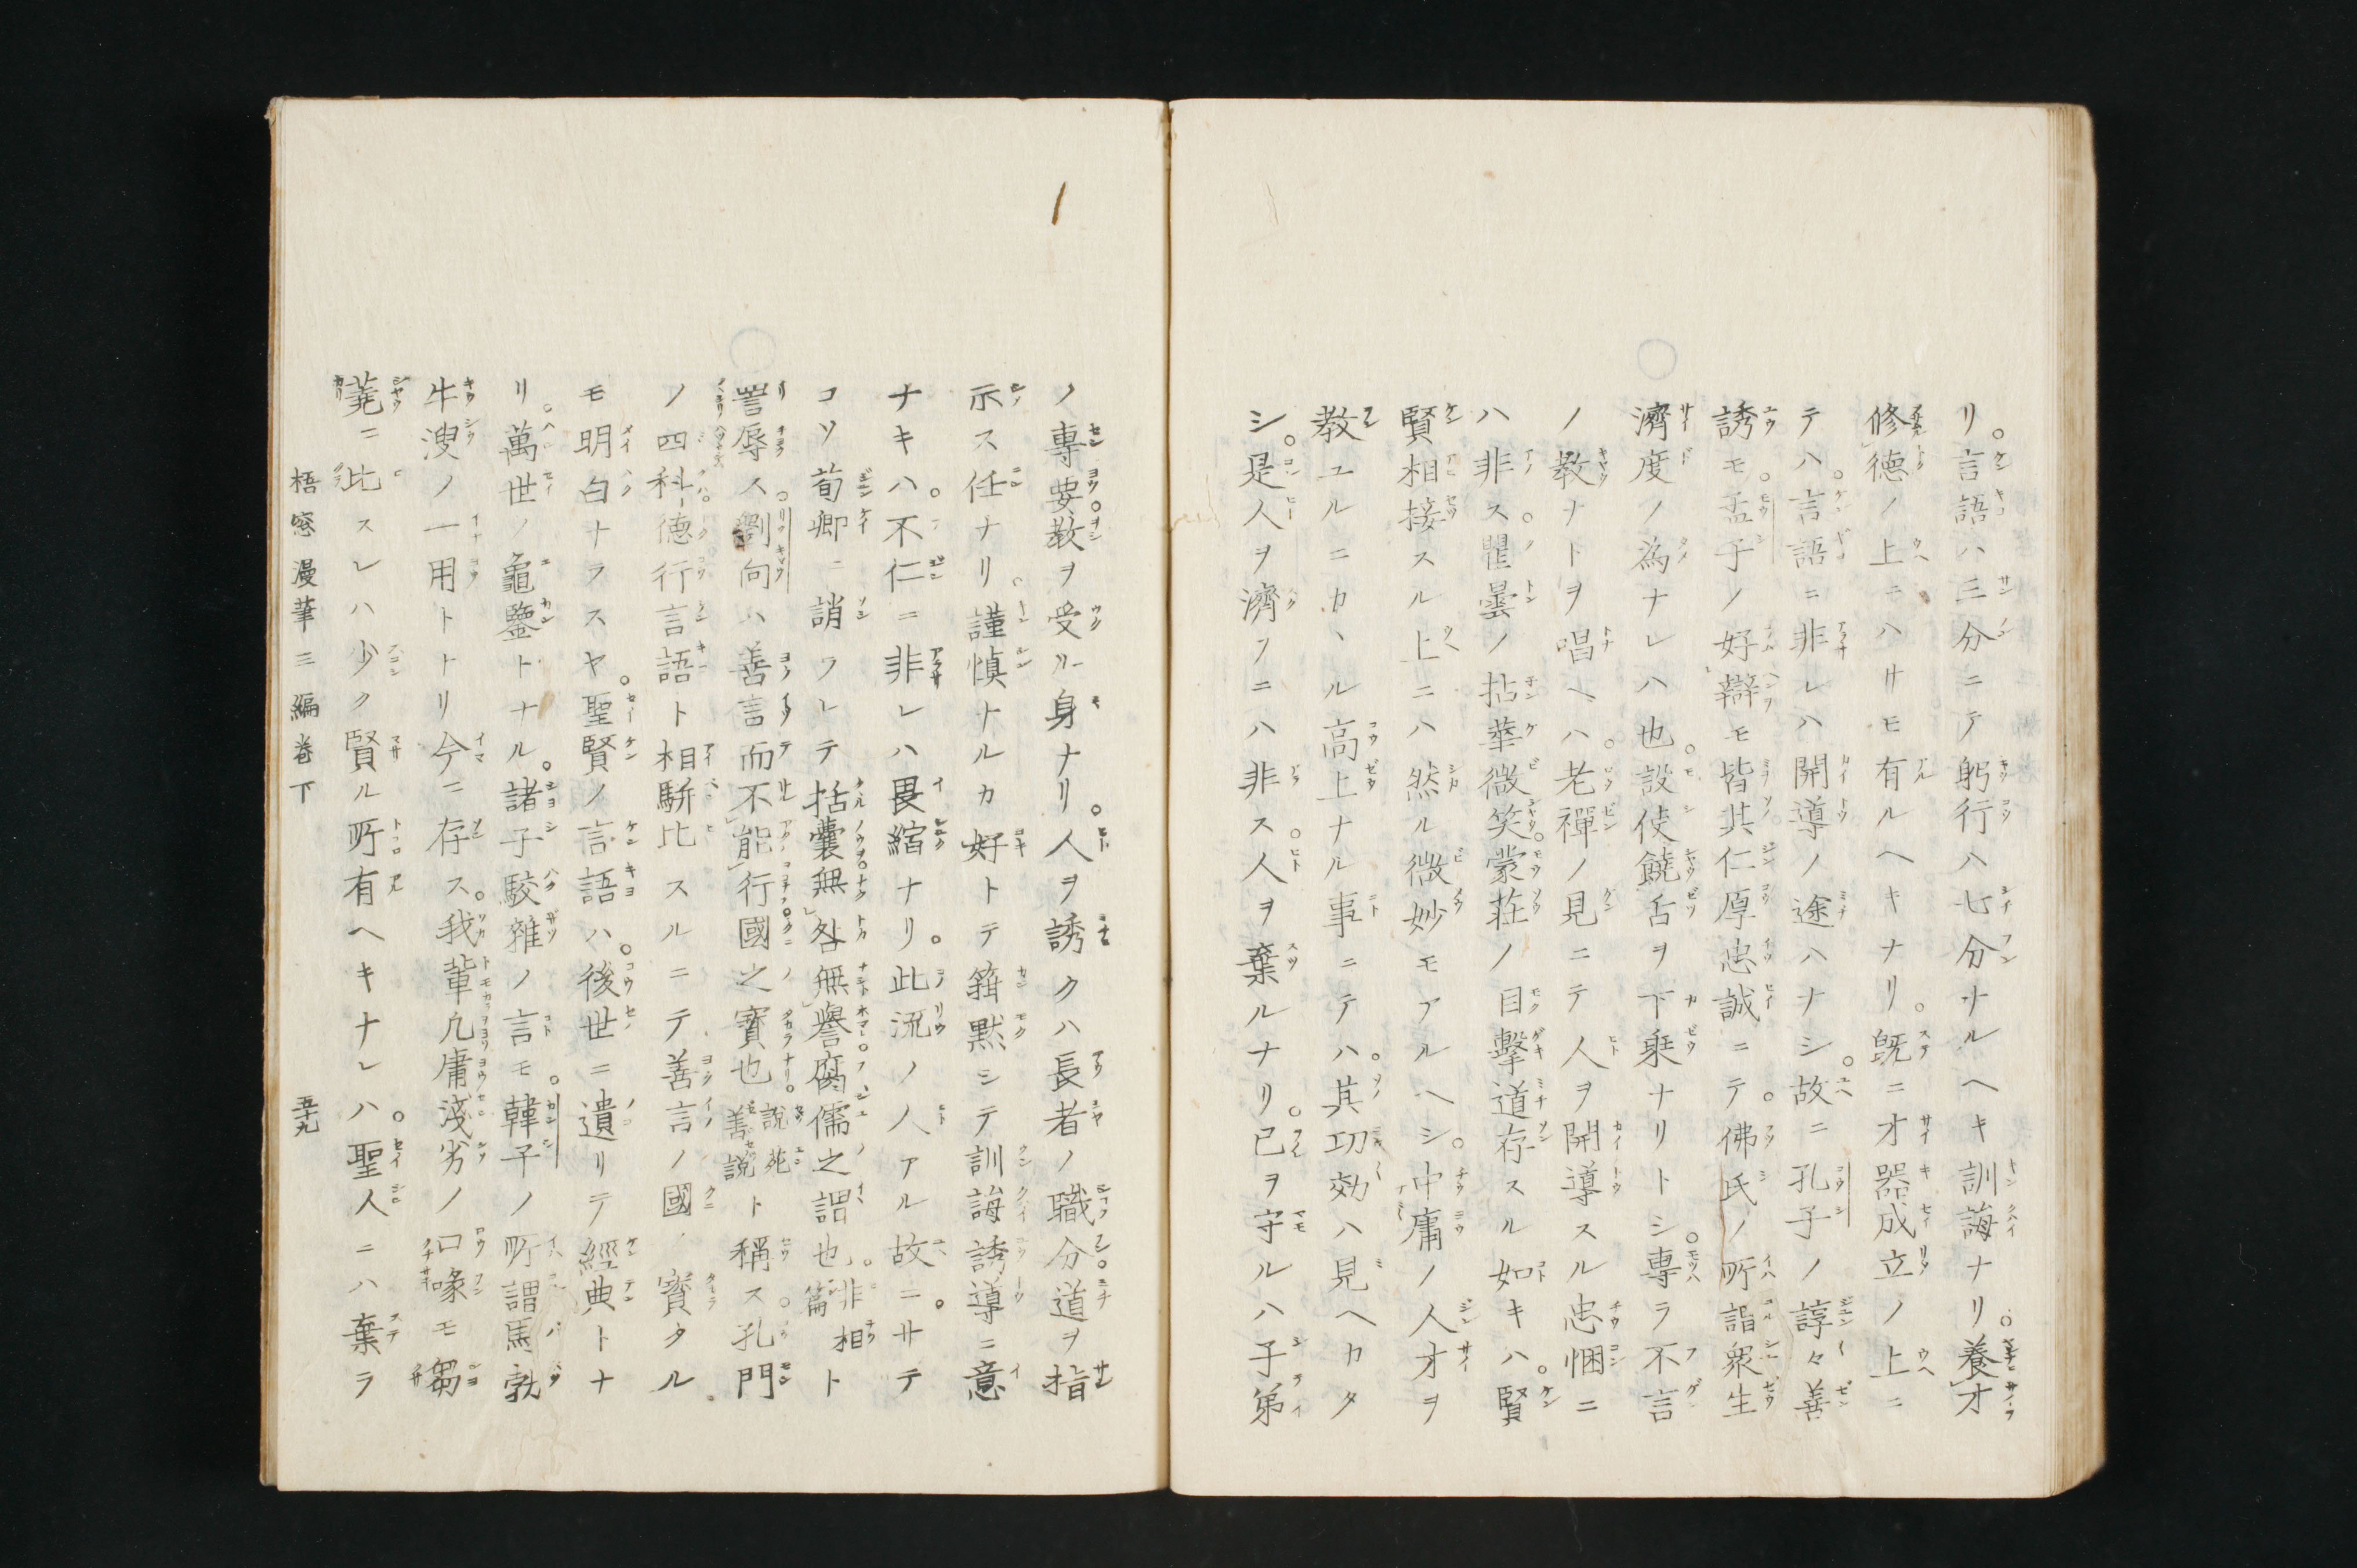 リ。言語ハ三分ニテ躬行ハ七分ナルヘキ訓誨ナリ。養才
修徳ノ上ニハサモ有ルヘキナリ。既ニオ器成立ノ上ニ
テハ。言語ニ非レハ開導ノ途ハナシ。故ニ孔子ノ諄々善
誘モ。孟子ノ好辯モ皆其仁厚忠誠ニテ。佛氏ノ所謂衆生
濟度ノ為ナレハ也。設使饒舌ヲ下乗ナリトシ。専ラ不言
ノ教ナトヲ唱ヘハ。老禪ノ見ニテ人ヲ開導スル忠悃ニ
ハ非ス。瞿曇ノ拈華微笑。蒙荘ノ目擊道存スル如キハ。賢
賢相接スル上ニハ然ル微妙モアルヘシ。中庸ノ人才ヲ
教ユルニカヽル高上ナル事ニテハ。其功効ハ見ヘカタ
シ。是人ヲ濟フニハ非ス。人ヲ棄ルナリ。己ヲ守ルハ子弟
ノ專要。教ヲ受ル身ナリ。人ヲ誘クハ長者ノ職分。道ヲ指
示ス任ナリ。謹慎ナルカ好トテ箝黙シテ訓誨誘導ニ意
ナキハ。不仁ニ非レハ畏縮ナリ。此流ノ人アル故ニ。サテ
コソ荀卿ニ誚ラレテ括囊無咎無譽腐儒之謂也。非相篇ト
詈辱ス。劉向ハ善言而不能行國之寶也。説苑善説ト稱ス。孔門
ノ四科。德行言語ト相駢比スルニテ善言ノ國ノ寳タル。
モ明白ナラスヤ。聖賢ノ言語ハ。後世ニ遺リテ經典トナ
リ。萬世ノ龜鑒トナル。諸子駁雜ノ言モ。韓子ノ所謂馬勃
牛溲ノ一用トトリ今ニ存ス。我輩凡庸淺劣ノ口喙モ芻
蕘ニ比スレハ少ク賢ル所有ヘキナレハ。聖人ニハ棄ラ
梧窓漫筆三編巻下
五十九